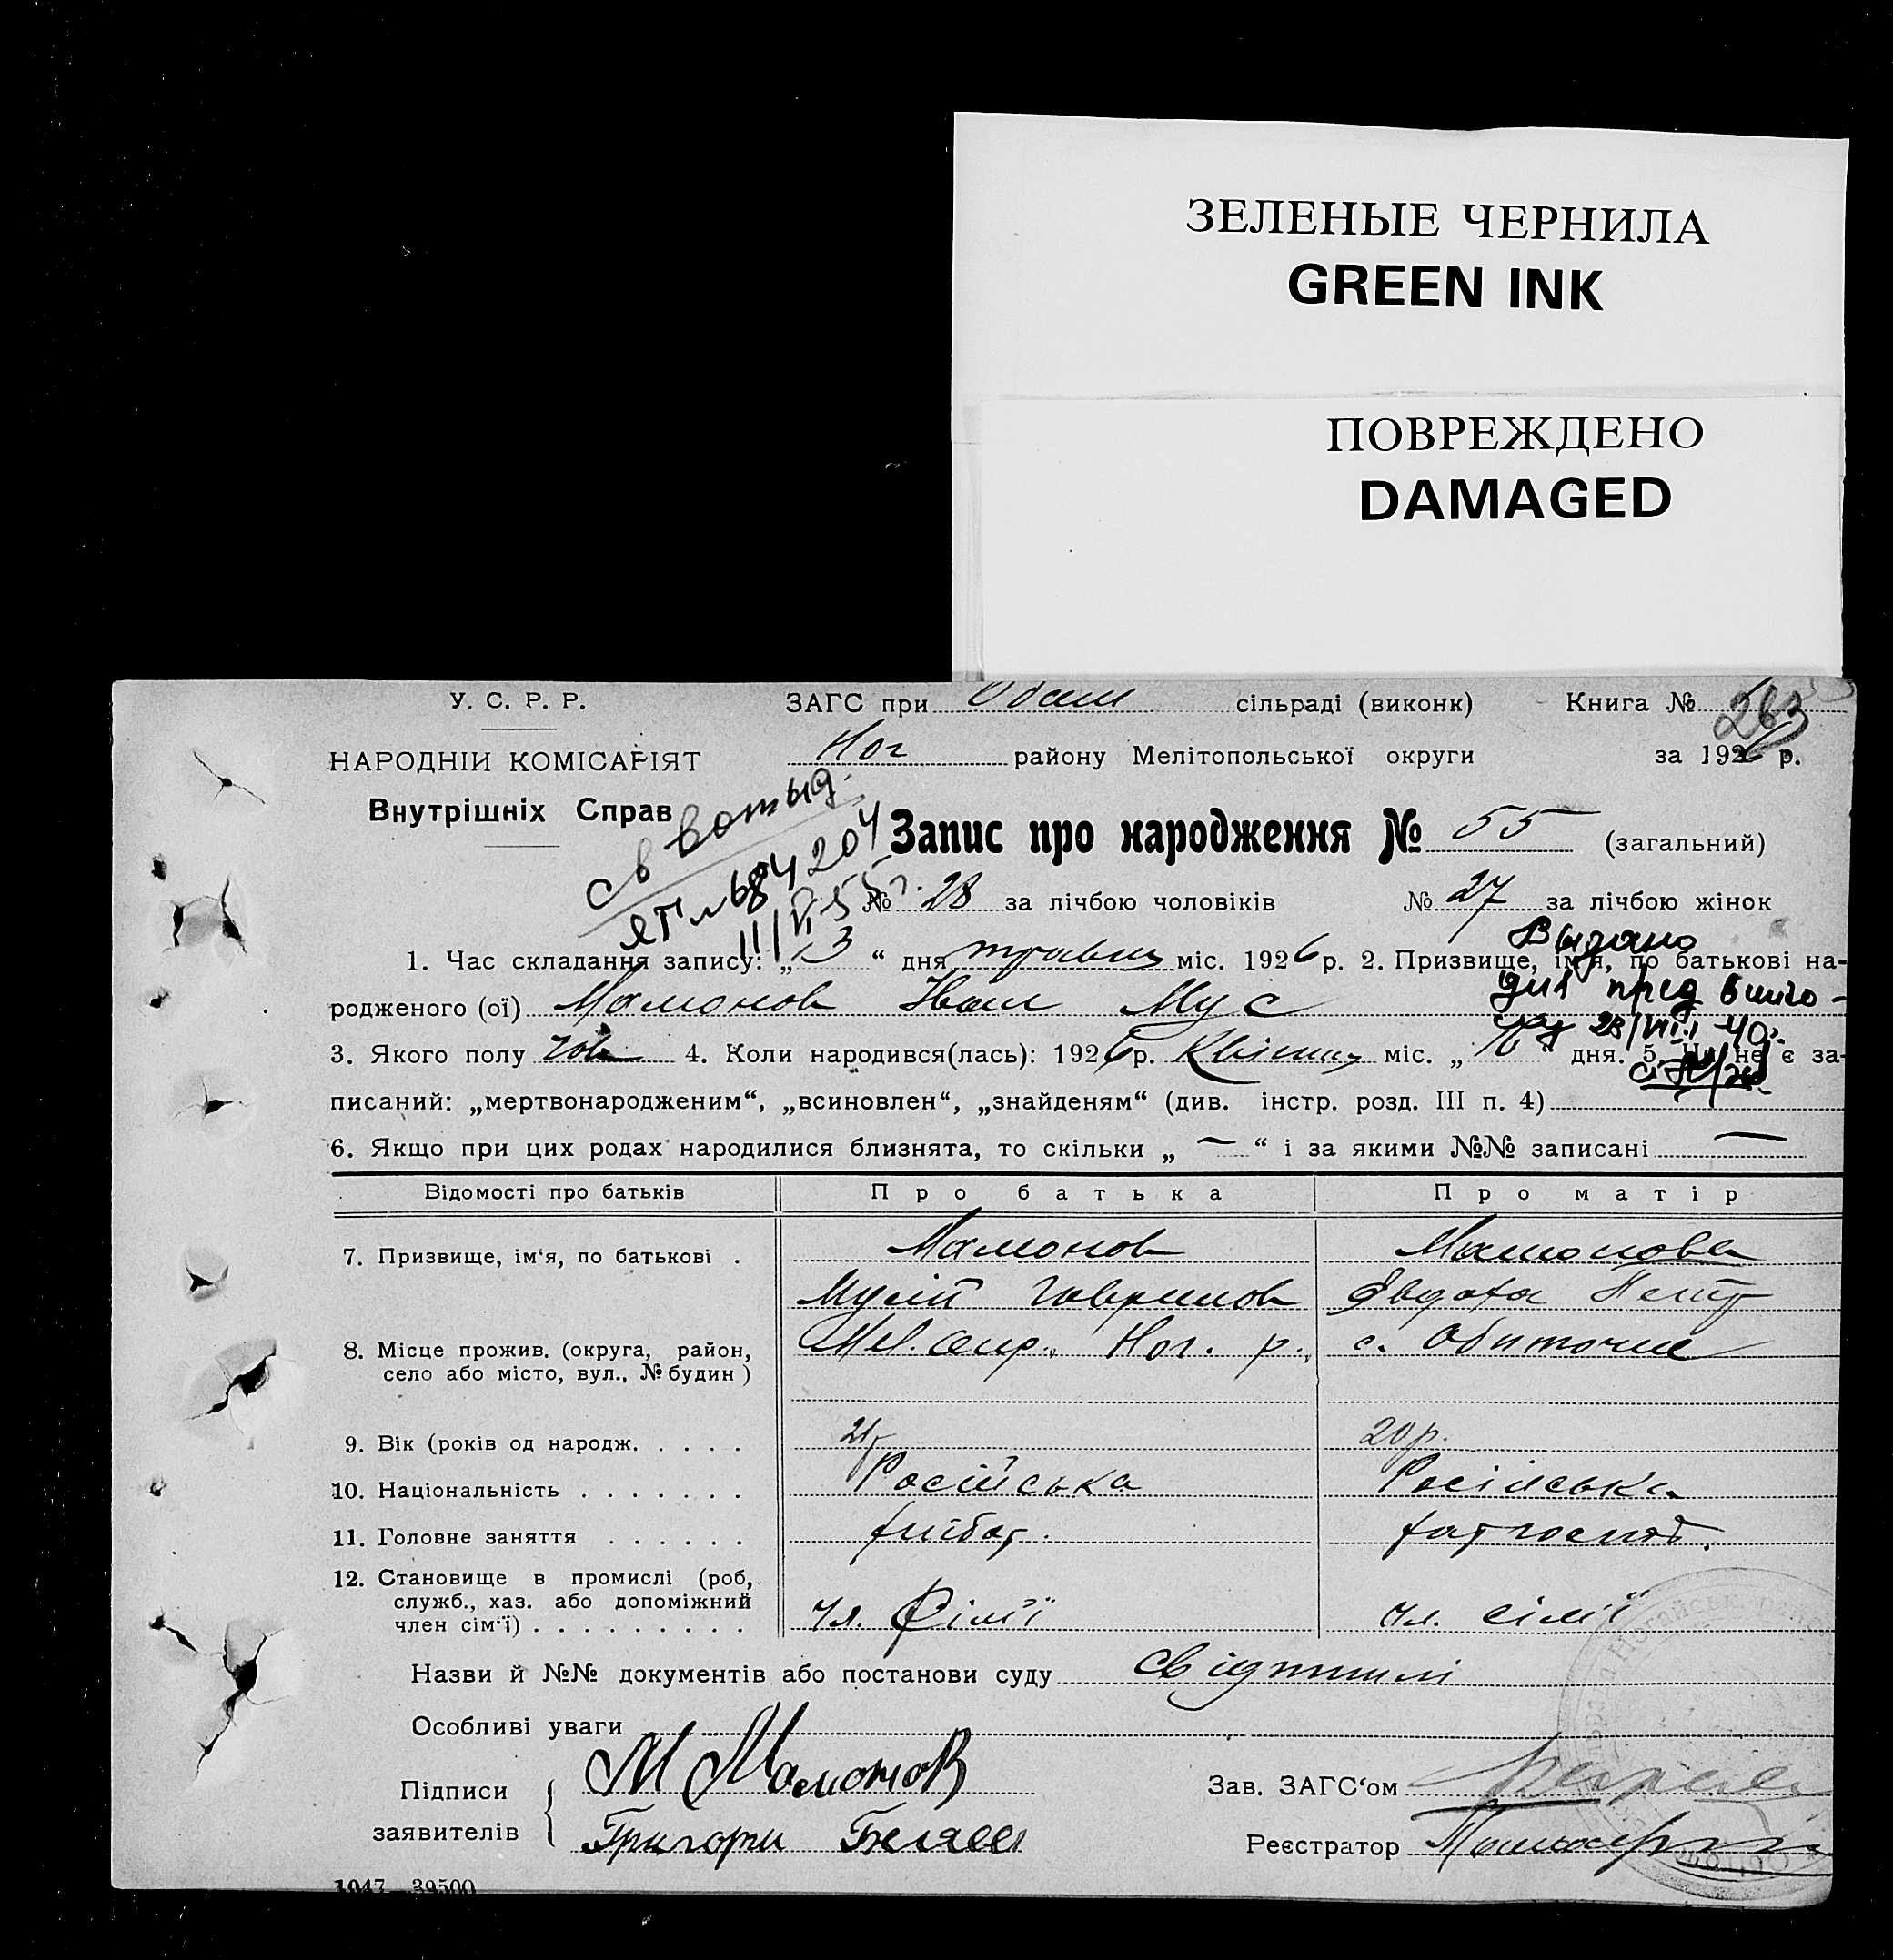 ЗЕЛЕНЫЕ ЧЕРНИЛА
GREEN INK
ПОВРЕЖДЕНО
DAMAGED
У. С. Р. Р. ЗАГС при сільраді (виконк) Книга № 263
НАРОДНІЙ КОМІСАРІЯТ Ног району Мелітопольської округи за 1926 р.
Внутрішніх Справ
Запис про народження № 55 (загальний)
св вотыд.
ЯП № 684204
№ 28 за лічбою чоловіків № 27 за лічбою жінок
Выдано
1. Час складання запису: „ 3 “ дня травня міс. 1926 р. 2. Призвище, ім'я, по батькові на-
родженого (ої) Мамонов Иван Мус
для пред
28/VIII 40
3. Якого полу чов 4. Коли народився(лась): 1926 р. Квітня міс. „ 16 “ дня. 5. Чи не є за-
писаний: „мертвонародженим“, „всиновлен“, „знайденям“ (див. інстр. розд. III п. 4)
6. Якщо при цих родах народилися близнята, то скільки „ — “ і за якими №№ записані —
Відомості про батьків Про батька Про матір
7. Призвище, ім‘я, по батькові . Мамонов Мамонова
Мусій Гаврилов Явдоха Петр
8. Місце прожив. (округа, район, Мел. окр., Ног. р., с. Обиточне
село або місто, вул., № будин)
9. Вік (років од народж. . . . . 21р 20р.
10. Національність . . . . . . . Російська Російська
11. Головне заняття . . . . . . хлібор. хатгоспод.
12. Становище в промислі (роб, служб., хаз. або допоміжний
член сім‘ї) . . . . . . . . . чл. сімї чл. сімї
Назви й №№ документів або постанови суду
Особливі уваги —
Підписи М Мамонов Зав. ЗАГС‘ом
заявителів Григори Беляев Реєстратор
1047 39500